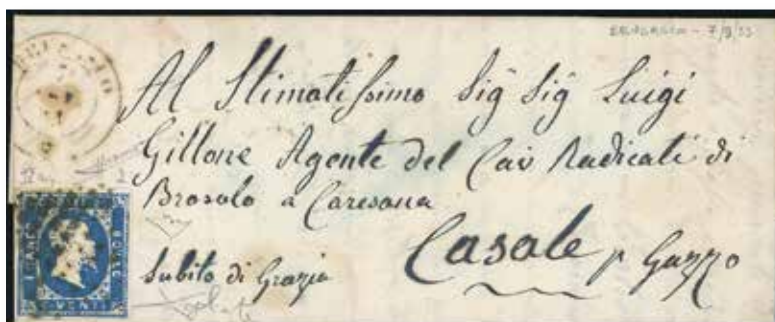 7/9/53
Al Stimatissimo Sig Sig Luigi
Gillone Agente del Cav Radicati di
Brosolo a Caresana
Casale p Gazzo
Subito di Grazia
FRANCO
BOLLO
VENTI